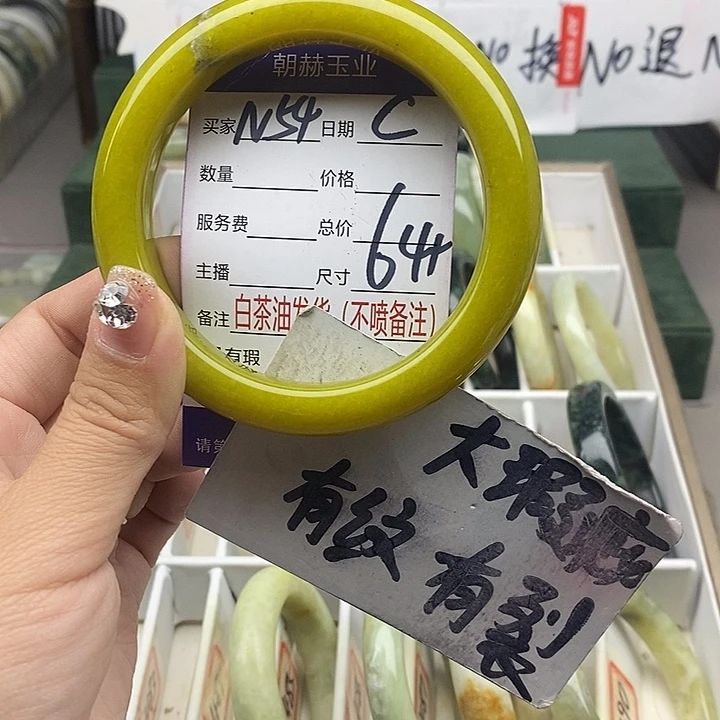 No 换 No 退 N
朝赫玉业
买家 N54 日期 C
数量 价格
服务费 总价
主播 尺寸 64+
备注 白茶油发货（不喷备注）
有瑕
请第
大瑕疵
有纹 有裂